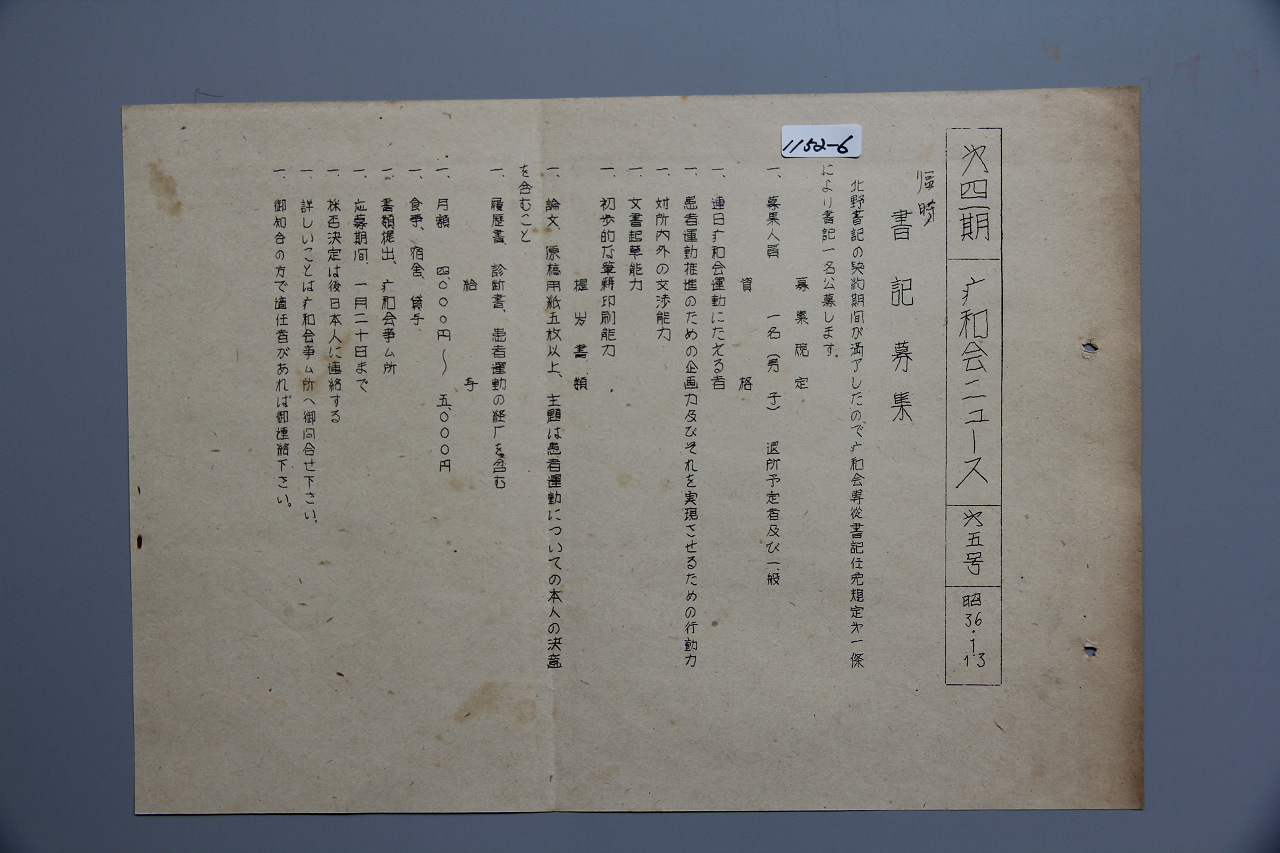 1152-6
才四一期 疒和会ニュース 才五号 昭36.1.13
臨時
書記募集
北野書記の契約期間が満了したので疒和会専従書記任免規定才一條
により書記一名公募します。
募集規定
一、募集人員 一名(男子) 退所予定者及び一般
資格
一、連日疒和会運動にたえる者
一、患者運動推進のための企画力及びそれを実現させるための行動力
一、対所内外の交渉能力
一、文書起草能力
一、初歩的な筆耕印刷能力
提出書類
一、論文 原稿用紙五枚以上、主題は患者運動についての本人の決意
を含むこと
一、履歴書、診断書、患者運動の経厂を含む
給与
一、月額 四〇〇〇円〜五、〇〇〇円
一、食事、宿舎、貸与
一、書類提出、疒和会事ム所
一、応募期間、一月二十日まで
一、採否決定は後日本人に連絡する
一、詳しいことは疒和会事ム所へ御問合せ下さい、
一、御知合の方で適任者があれば御連絡下さい。